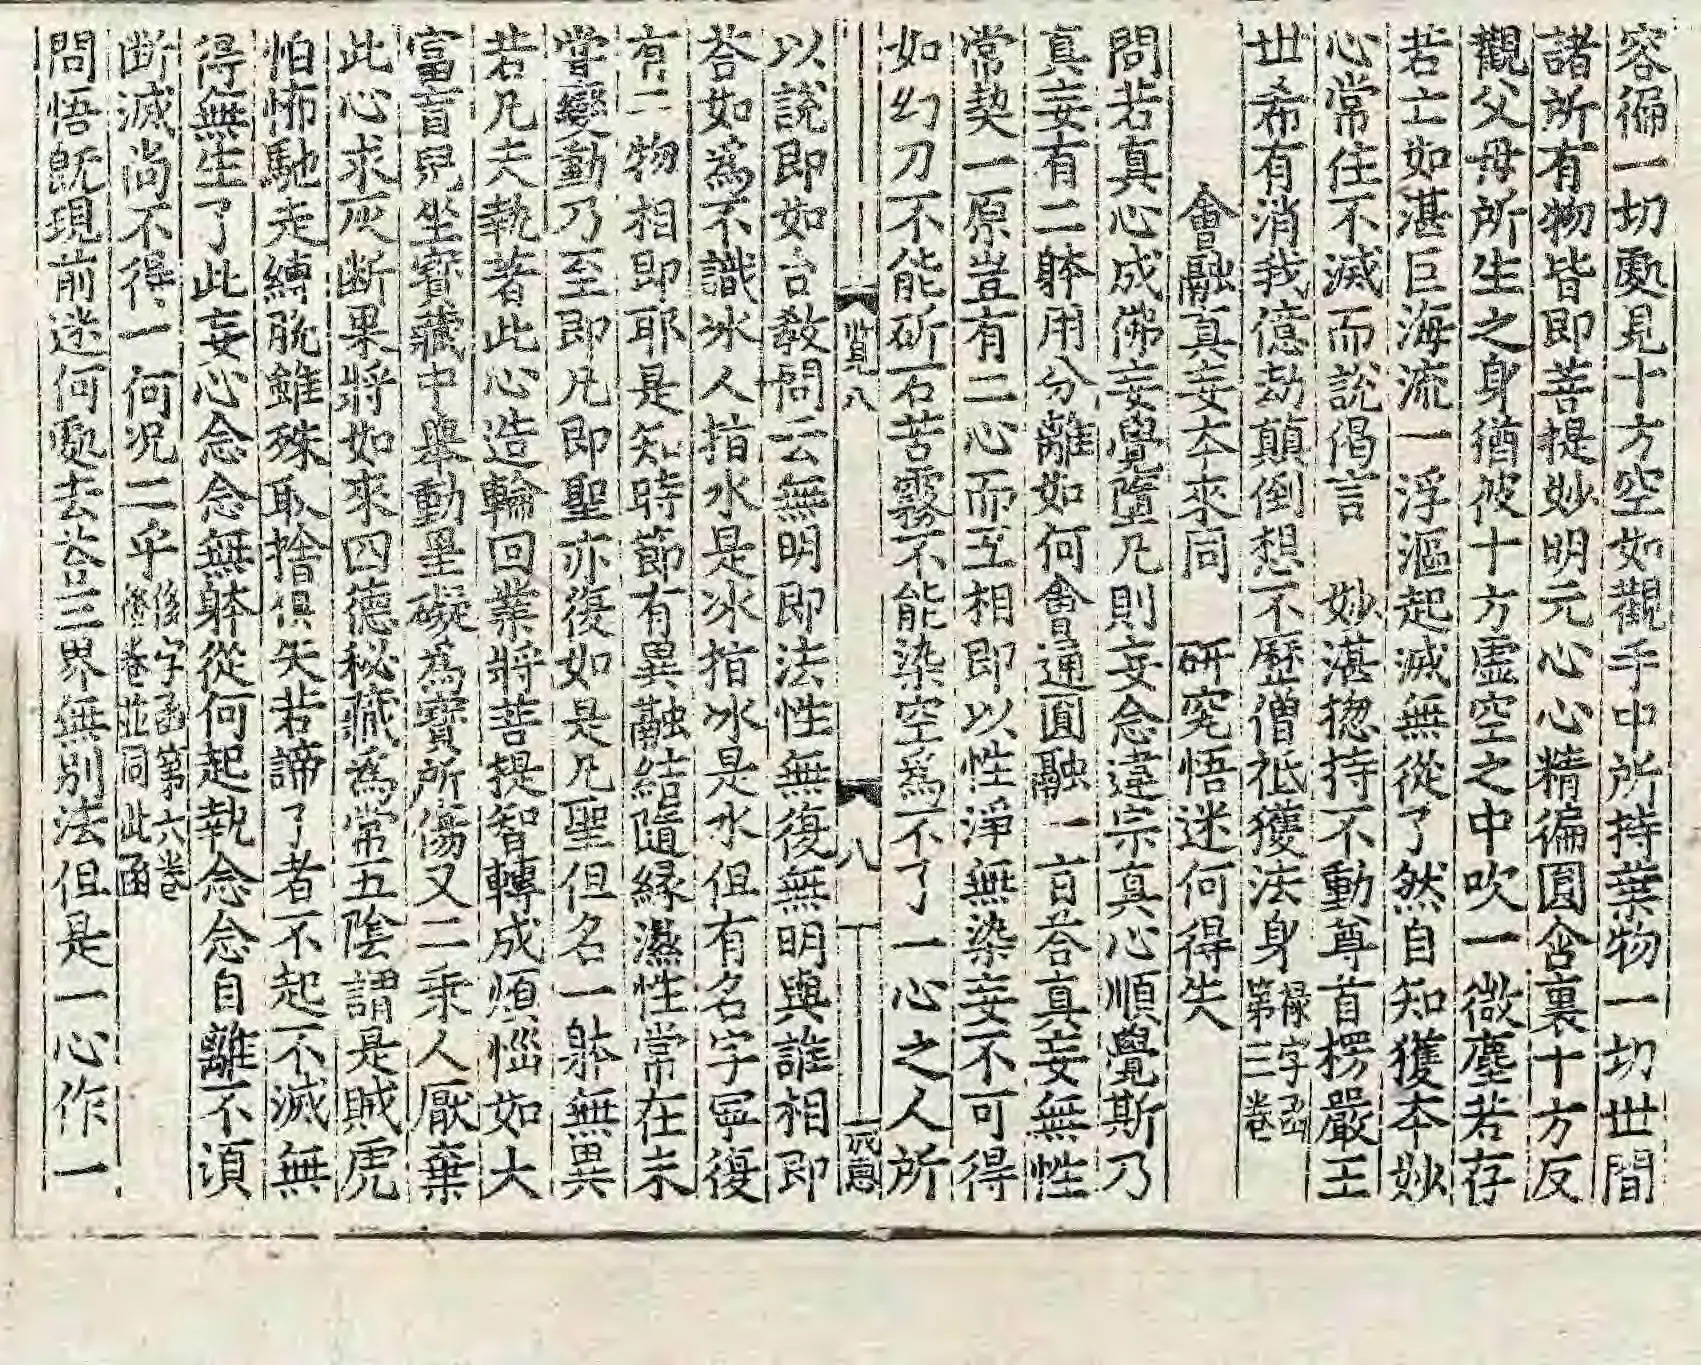 容徧一切處見十方空如觀手中所持葉物一切世間
諸所有物皆即菩提妙明元心心精徧圓含裏十方反
觀父母所生之身猶彼十方虛空之中吹一微塵若存
若亡如湛巨海流一浮漚起滅無從了然自知獲本妙
心常住不滅而說偈言　妙湛揔持不動尊首楞嚴王
世希有消我億劫顛倒想不歷僧祇獲法身
祿字函
第三卷
會融真妄本來同　研究悟迷何得失
問若真心成佛妄覺墮凡則妄念違宗真心順覺斯乃
真妄有二躰用分離如何會通圓融一旨荅真妄無性
常契一原豈有二心而互相即以性淨無染妄不可得
如幻刀不能斫石苦霧不能染空為不了一心之人所
覽八
八
以說即如台教問云無明即法性無復無明與誰相即
荅如為不識冰人指水是冰指冰是水但有名字寧復
有二物相即耶是知時節有異融結隨緣濕性常在未
嘗變動乃至即凡即聖亦復如是凡聖但名一躰無異
若凡夫執著此心造輪回業將菩提智轉成煩惱如大
富盲兒坐寶藏中舉動罣礙為寶所傷又二乘人厭棄
此心求灰断果將如來四德秘藏為常五陰謂是賊虎
怕怖馳走縛脫雖殊取捨俱失若諦了者不起不滅無
得無生了此妄心念念無躰從何起執念念自離不湏
断滅尚不得一何况二乎
後字函第六卷
後卷並同此函
問悟既現前迷何處去荅三界無別法但是一心作一